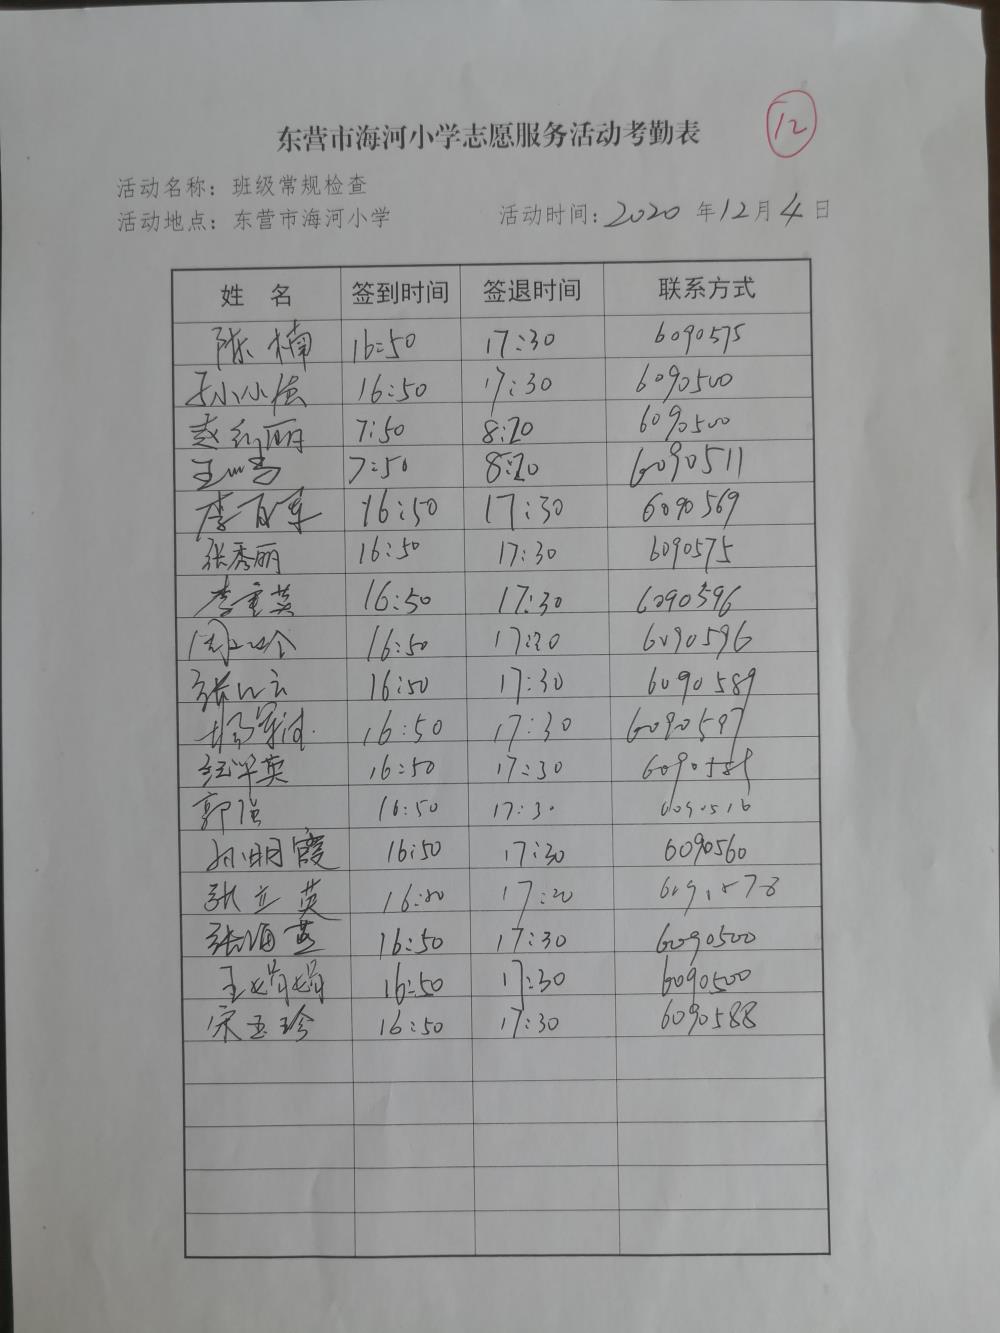 12
东营市海河小学志愿服务活动考勤表
活动名称：班级常规检查
活动地点：东营市海河小学 活动时间：2020 年 12 月 4 日
姓 名 签到时间 签退时间 联系方式
陈楠 16:50 17:30 6090575
16:50 17:30 6090500
赵红丽 7:50 8:20 6090500
7:50 8:20 6090511
李百军 16:50 17:30 6090569
张秀丽 16:50 17:30 6090575
李重英 16:50 17:30 6090596
16:50 6090596
16:50 17:30 6090589
16:50 17:30 6090597
16:50 17:30
郭强 16:50 17:30 6090516
孙明霞 16:50 17:30 6090560
张立英
张海燕 16:50 17:30 6090500
王娟娟 16:50 17:30 6090500
宋玉珍 16:50 17:30 6090588